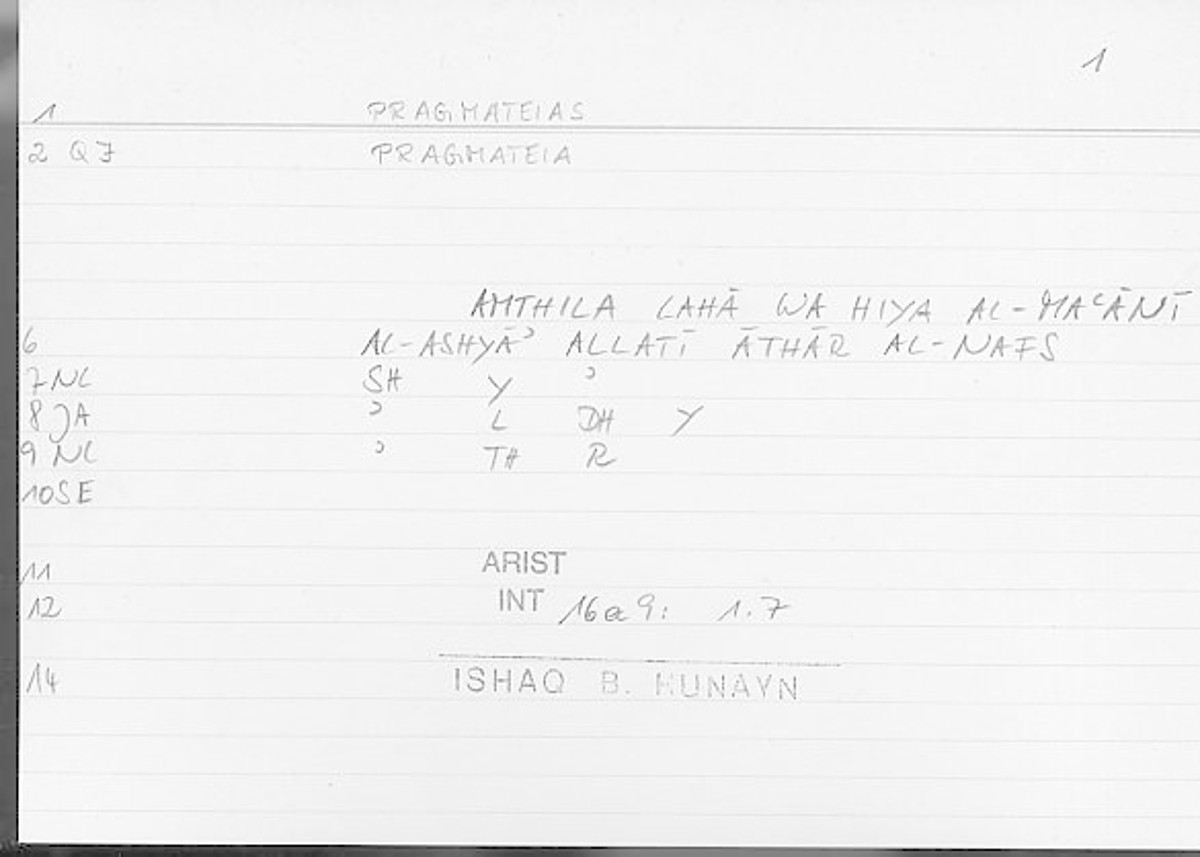 1
1 PRAGMATEIAS
2 Q7 PRAGMATEIA
AMTHILA LAHĀ WA HIYA AL-MAʿĀNĪ
6 AL-ASHYĀʾ ALLATĪ ĀTHĀR AL-NAFS
7 NC SH Y ʾ
8 JA ʾ L DH Y
9 NC ʾ TH R
10 SE
11 ARIST
12 INT 16a9: 1.7
14 ISHAQ B. HUNAYN